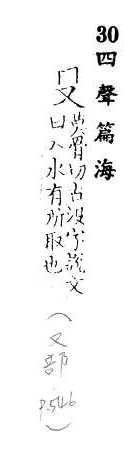 30 四聲篇海
莫骨切古沒字說文
曰入水有所取也
(又部 P.546)